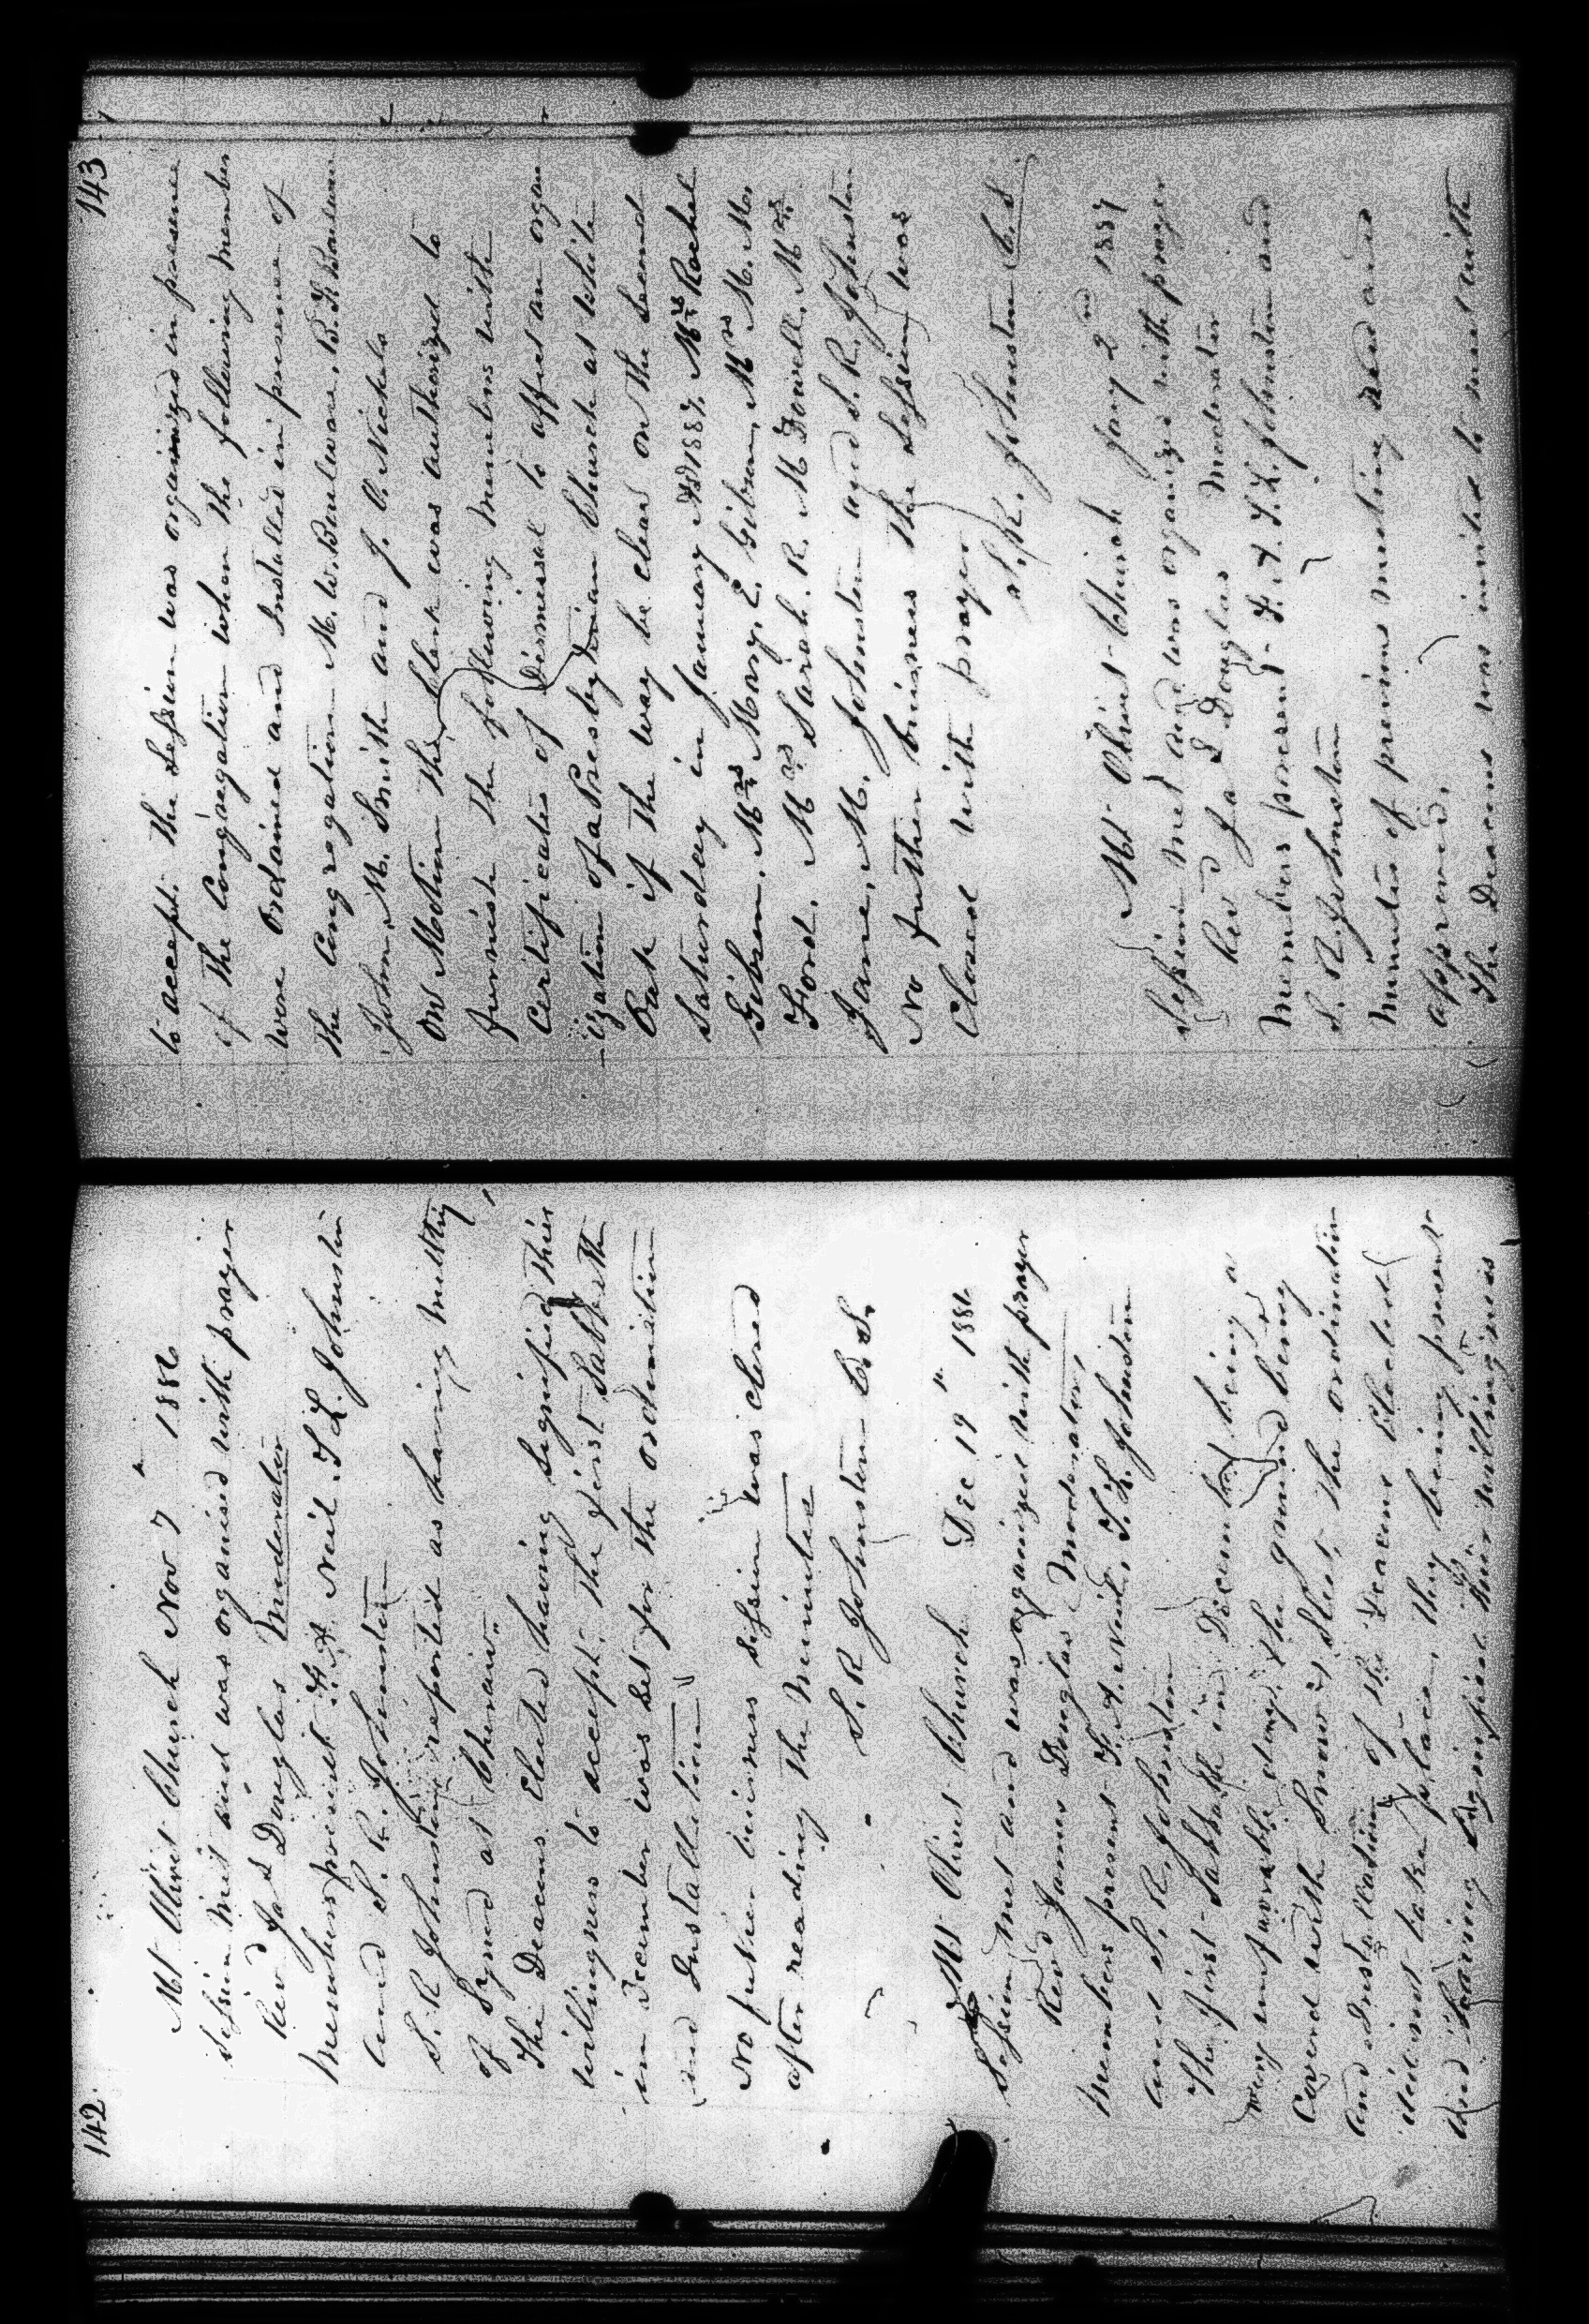 142
Mt Olivet Church Nov 7th 1886
Session met and was organised with prayer
Revd Jas Douglas Moderator
Members present T. A. Neil. T L. Johnston
and S. R. Johnston
S. R Johnston reported as having met Pby
of Synod at Cheraw.
The Deacons Elected having signified their
willigness to accept, the first Sabbath
in December was set for the ordination
and Installation
No futher business session was closed
after reading the Minutes
S. R Johnston C. S.
Mt Olivet Church Dec 19th 1886
Session met and was organized with prayer
Revd James Douglas Moderator,
Members present T. A. Neil, T. L. Johnston
and S. R. Johnston
The first Sabbath in December being a
very unfavorable day, the ground being
Coverd with Snow & Sleet, the ordination
and Installation of the Deacons Elected
did not take place, they being present
and having signified their willingness
143
to accept. The Session was organized in presence
of the Congregation when the following member
were Ordained and Installed in presence of
the Congregation M. W. Boulware, B. F. Boulware
John, M. Smith and J. O. Nickels
On Motion the Clerk was authorized to
furnish the following members with
Certificates of Dismissal to effect an organ
ization of a Presbyterian Church at White
Oak if the way be clear on the Second
Saturday in January AD 1887, Mrs Rachel
Gibson, Mrs Mary, E. Gibson, Mrs M. M.
Ford, Mrs Sarah. R. McDowell, Mrs
Jane, M. Johnston and S. R. Johnston
No futher business the Session was
Closed with prayer
S. R. Johnston C. S.
Mt Olivet Church Jany 2nd 1887
Session met and was organized with prayer
Revd Jas Douglas Moderator
Members present T. A. T. L. Johnston and
S. R. Johnston
Minutes of previous meeting read and
approved,
The Deacons was invited to meet with